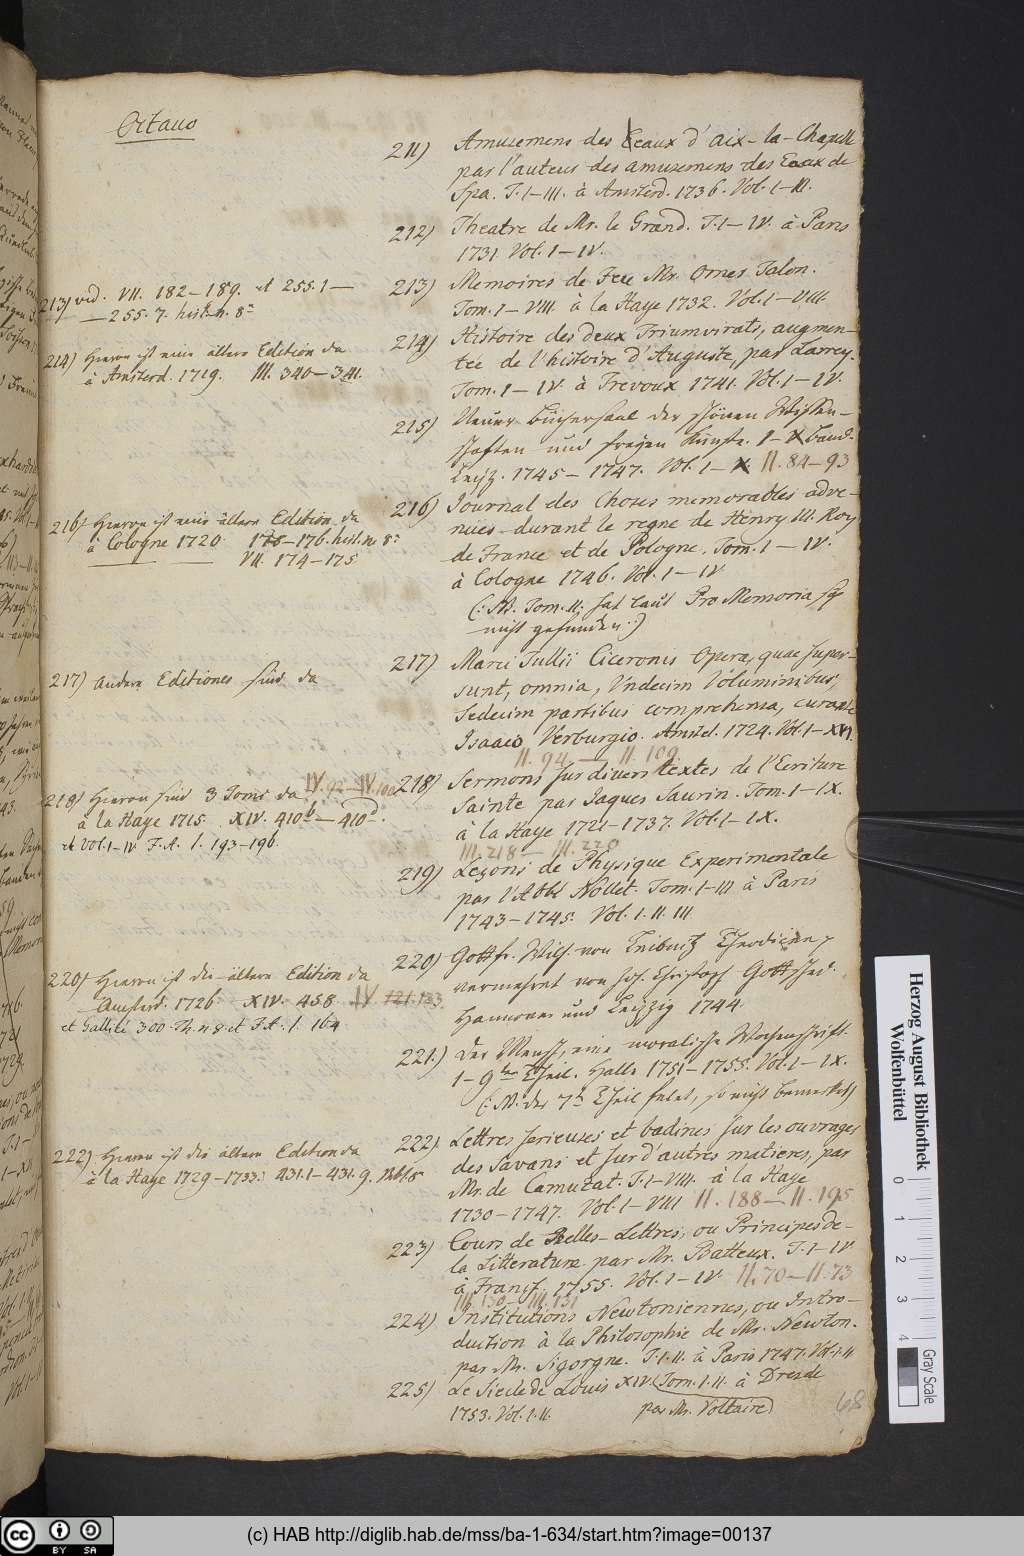 Octavo
211) Amusemens des Eeaux d'Aix-la-Chapelle
par l'auteur des amusemens des Eaux de
Spa. T. I-III. à Amsterd. 1736. Vol. I-III.
212) Theatre de Mr. le Grand. T. I-IV. à Paris
1731 Vol. I-IV.
213) vid. VII. 182-189. et 255.1-
-255.7. hist. n. 8°
213) Memoires de Feu Mr. Omer Talon.
Tom. I-VIII. à la Haye 1732. Vol. I-VIII
214) Hievon ist eine ältere Edition da
à Amsterd. 1719. III. 340-341.
214) Histoire des deux Triumvirats, augmen-
tée de l'histoire d'Auguste, par Larrey.
Tom. I-IV. à Trevoux 1741. Vol. I-IV.
215) Neuer Büchersaal der schönen Wissen-
schaften und freyen Künste. I-X Band.
Leipz. 1745-1747. Vol. I-X. II. 84-93
216) Hievon ist eine ältere Edition da
à Cologne 1720. 175-176. hist. n. 8°
VII. 174-175
216) Journal des Choses memorables adve-
nues durant le regne de Henry III. Roy
de France et de Pologne. Tom. I-IV.
à Cologne 1746. Vol. I-IV
(: NB. Tom. II. hat laut Pro Memoria sich
nicht gefunden. :)
217) Andere Editiones sind da
217) Marci Tullii Ciceronis Opera, quae super-
sunt, omnia, Undecim Voluminibus,
Sedecim partibus comprehensa, curante
Isaaco Verburgio. Amstel. 1724. Vol. I-XVI.
II. 94 - II. 109
218) Hievon sind 3 Tomi da IV. 92-IV. 100
à la Haye 1715. XIV. 410b-410d.
et Vol. I-IV T. A. l. 193-196.
218) Sermons sur divers textes de l'Ecriture
Sainte par Jaques Saurin. Tom. I-IX.
à la Haye 1721-1737. Vol. I-IX.
III. 218 - III. 220
219) Leçons de Physique Experimentale
par l'Abbé Nollet. Tom. I-III à Paris
1743-1745. Vol. I. II. III.
220) Hievon ist die ältere Edition da
Amsterd. 1726 XIV. 458.
220) Gottfr. Wilh. von Leibnitz Theodicee,
vermehret von Joh. Christoph Gottsched.
Hannover und Leipzig 1744.
221.) Der Mensch, eine moralische Wochenschrift.
1-9ter Theil. Halle 1751-1755. Vol. I-IX.
(: NB. der 7te Theil fehlet, so nicht bemerket)
222) Hievon ist die ältere Edition da
à la Haye 1729-1733. 431.1-431.9.
222) Lettres serieuses et badines sur les ouvrages
des Savans et sur d'autres matieres, par
Mr. de Camuzat. T. I-VIII. à la Haye
1730-1747. Vol. I-VIII II. 188-II. 195
223) Cours de Belles-Lettres, ou Principes de-
la Litterature par Mr. Batteux. T. I-IV
à Francf. 1755. Vol. I-IV. II. 70-II. 73
III. 130-III. 131
224) Institutions Newtoniennes, ou Intro-
duction à la Philosophie de Mr. Newton.
par Mr. Sigorgne. T. I. II. à Paris 1747. Vol. I. II
225) Le Siecle de Louis XIV. Tom. I. II. à Dresde
1753. Vol. I. II. par Mr. Voltaire
68
Herzog August Bibliothek
Wolfenbüttel
0 1 2 3 4
Gray Scale
cc BY SA
(c) HAB http://diglib.hab.de/mss/ba-1-634/start.htm?image=00137